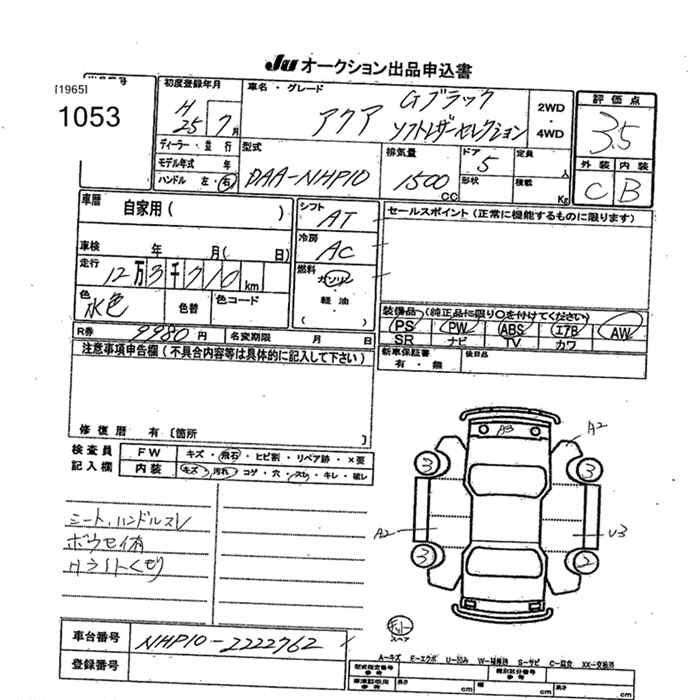 Ju オークション出品申込書
[1965]
1053
初度登録年月 車名・グレード
H 25 7月 アクア Gブラック ソフトレザーセレクション
2WD・4WD
評価点
3.5
外装 内装
C B
ディーラー・並行
モデル年式 年
ハンドル 左・右
型式
DAA-NHP10
排気量
1500 CC
ドア 5
形状
定員 人
積載 Kg
車歴 自家用( )
シフト AT
冷房 AC
燃料 ガソリン 軽油 ( )
セールスポイント(正常に機能するものに限ります)
車検 年 月( 日)
走行 12万3千710km
色 水色 色替 色コード
R券 9980円 名変期限 月 日
装備品(純正品に限り○を付けてください)
PS PW ABS エアB AW
SR ナビ TV カワ
新車保証書 有・無 後日品
注意事項申告欄(不具合内容等は具体的に記入して下さい)
修復歴 有〔箇所 〕
検査員記入欄
FW キズ・飛石・ヒビ割・リペア跡・×要
内装 キズ・汚れ・コゲ・穴・スレ・キレ・破レ
シート、ハンドルスレ
ボウセイ有
Hライトくもり
A3 A2
3 3
A2 U3
3 2
キット
スペア
車台番号 NHP10-2222762
登録番号
A-キズ E-エクボ U-凹み W-補修跡 S-サビ C-腐食 XX-交換済
型式指定番号 参考 類別区分番号 参考
車庫証明用 参考 長さ cm 幅 cm 高さ cm